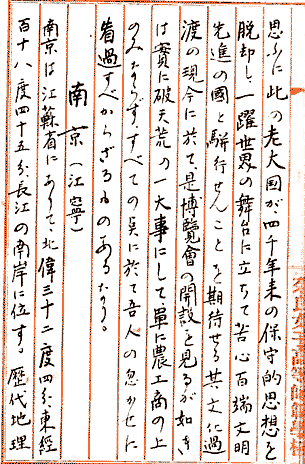 思ふに此の老大国が、四千年来の保守的思想を
脱却し、一躍世界の舞台に立ちて苦心百端文明
先進の國と駢行せんことを期待せる其文に過
渡の現今に於て、是博覽會の開設を見るが如き
は實に破天荒の一大事にして單に農工商の上
のみならず、すべての点に於て吾人の忽かせに
看過すべからざるものあるなり。
南京（江寧）
南京は江蘇省にありて、北偉三十二度四分、東經
百十八度四十五分、長江の南岸に位す。歷代地理